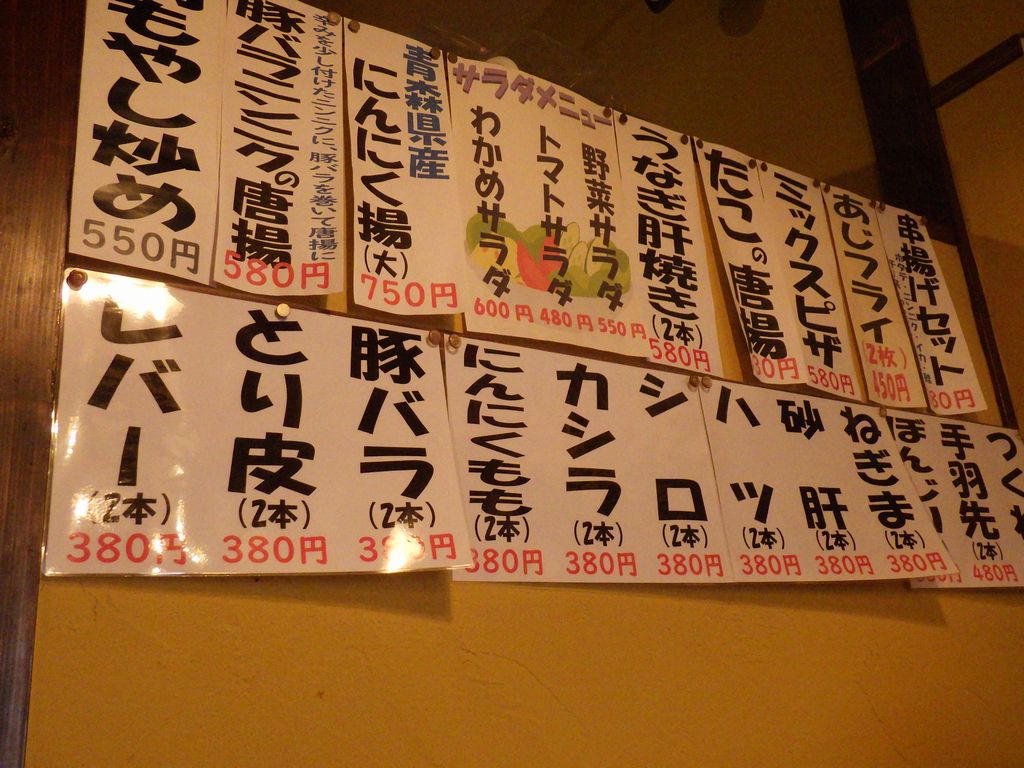 もやし炒め
550円
豚バラニンニクの唐揚
少し付けたニンニクに、豚バラを巻いて唐揚に
580円
青森県産
にんにく揚(大)
750円
サラダメニュー
わかめサラダ
600円
トマトサラダ
480円
野菜サラダ
550円
うなぎ肝焼き(2本)
580円
たこの唐揚
80円
ミックスピザ
580円
あじフライ
(2枚)
450円
串揚げセット
80円
レバー
(2本)
380円
とり皮
(2本)
380円
豚バラ
(2本)
380円
にんにくもも
(2本)
380円
カシラ
(2本)
380円
シロ
(2本)
380円
ハツ
(2本)
380円
砂肝
(2本)
380円
ねぎま
(2本)
380円
ぼんじり
手羽先
(2本)
480円
つくね